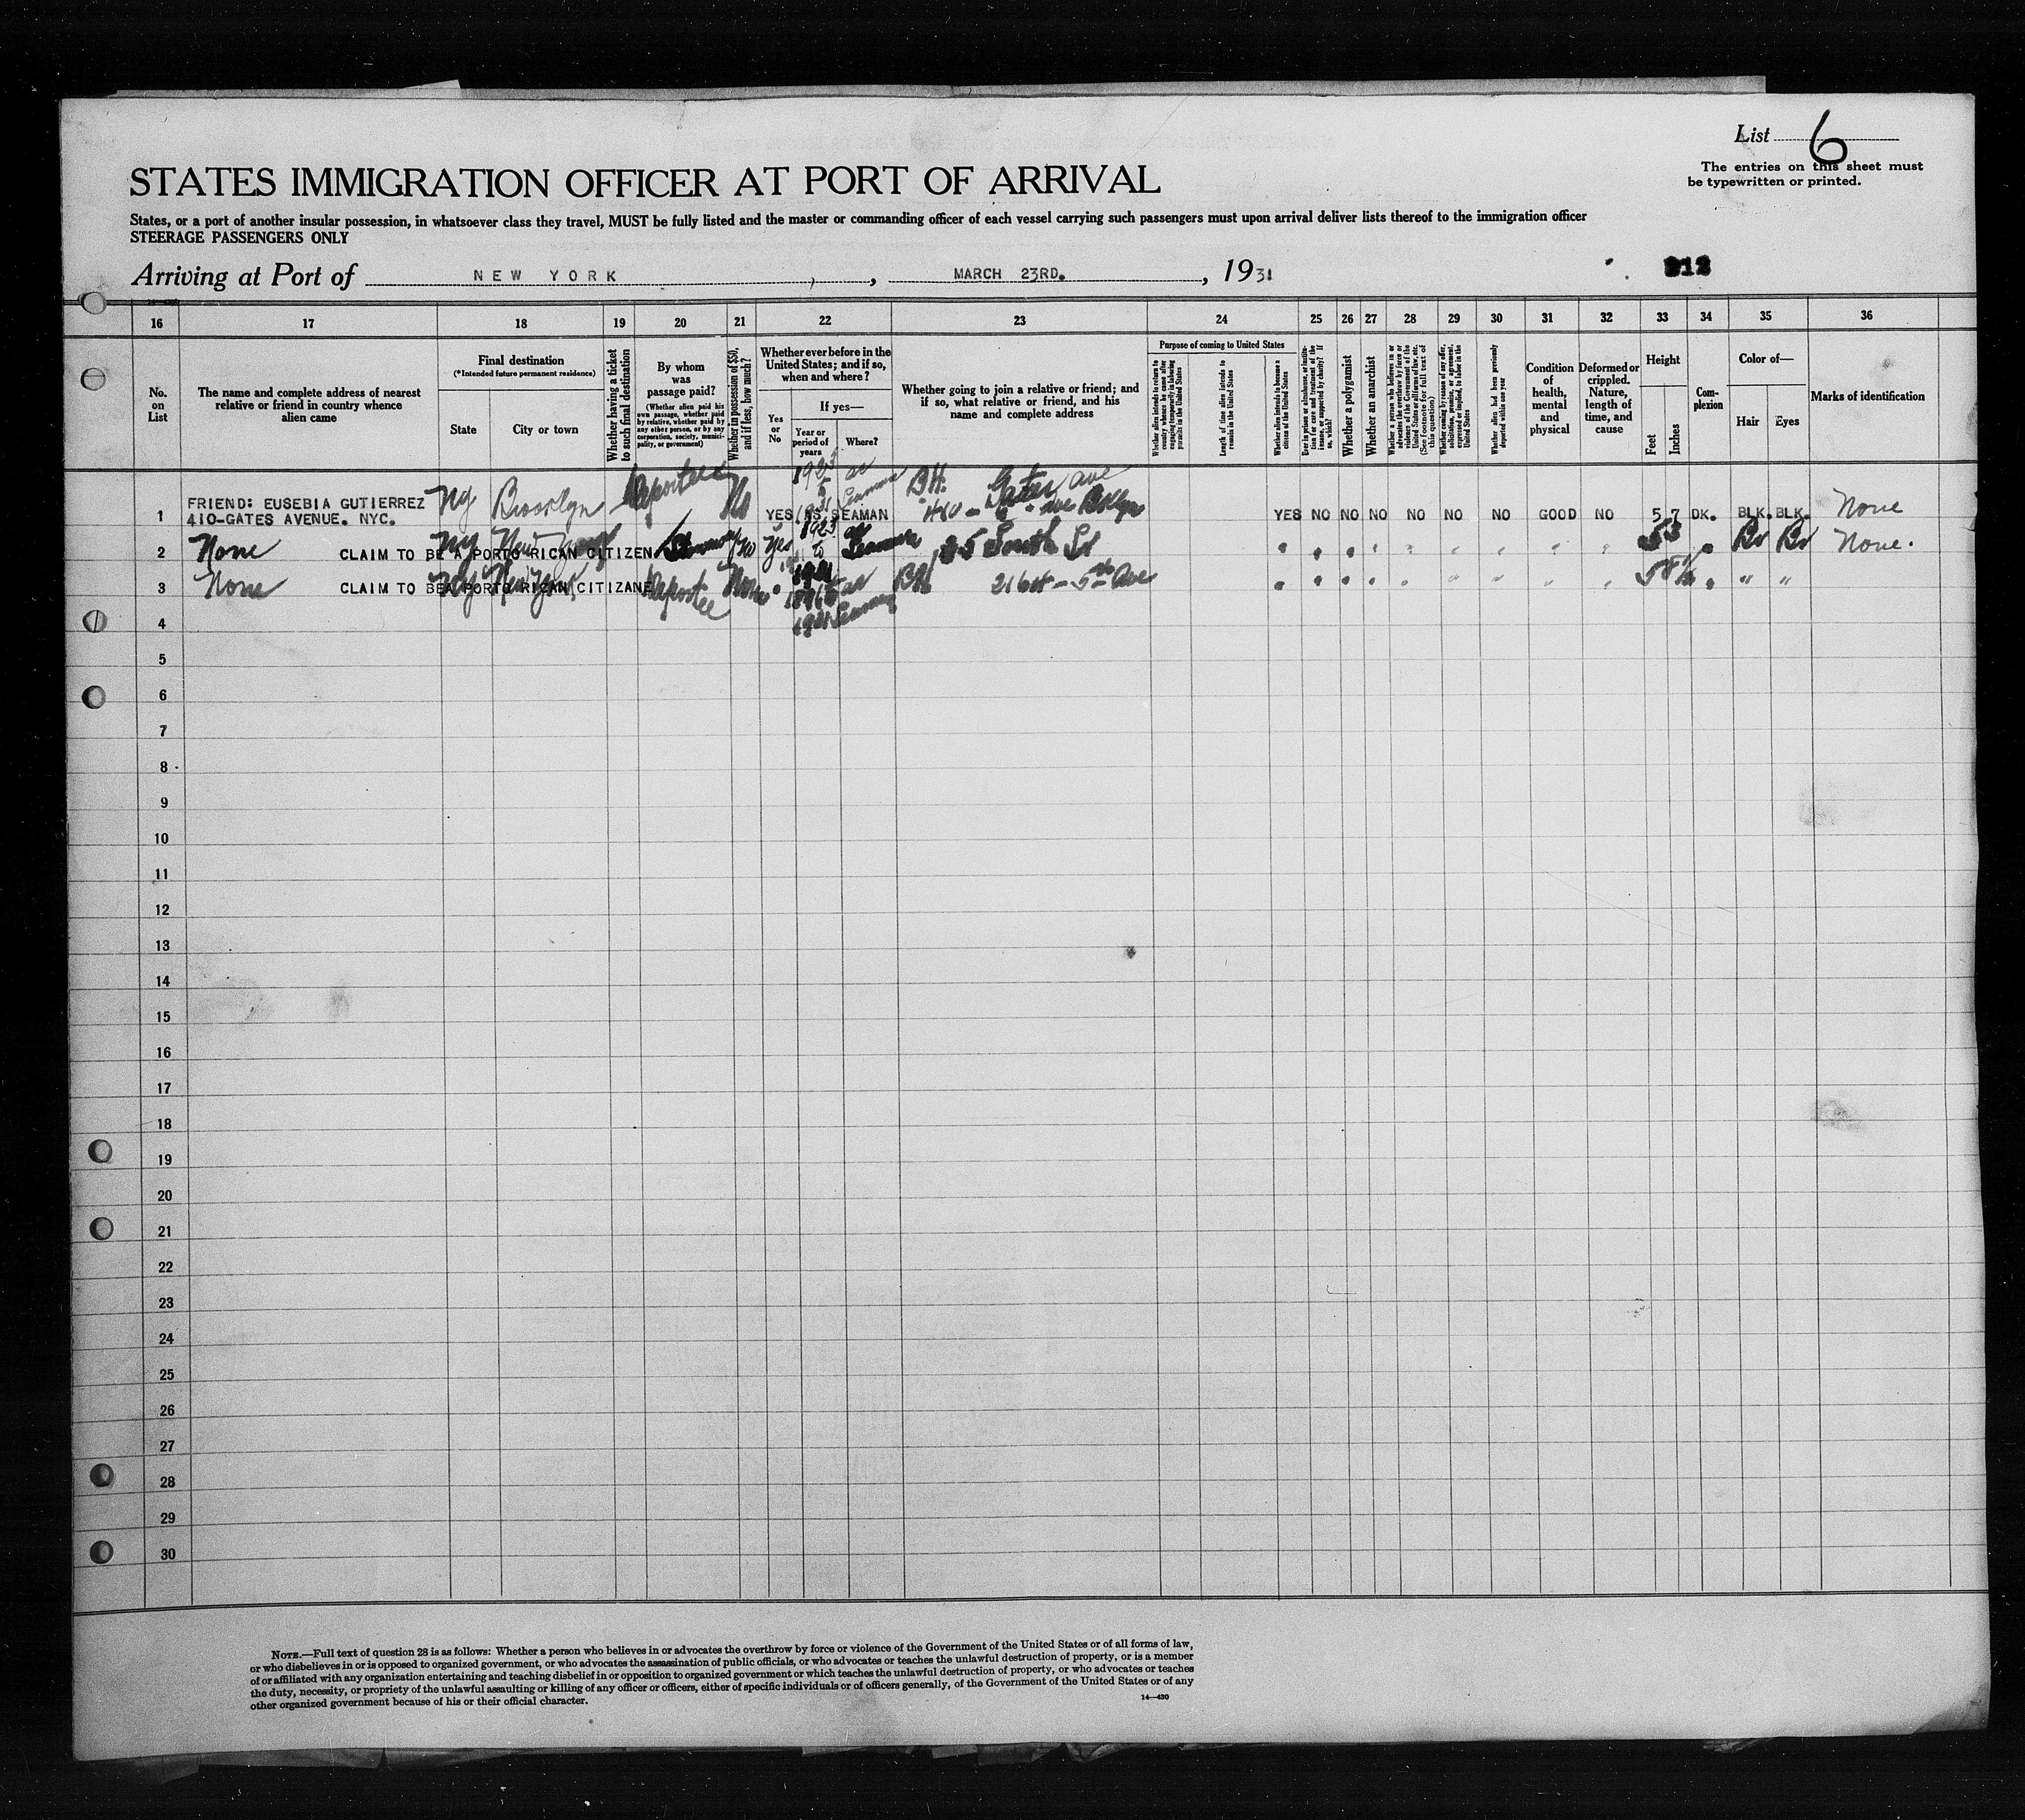 List 6
The entries on this sheet must
be typewritten or printed.
STATES IMMIGRATION OFFICER AT PORT OF ARRIVAL
States, or a port of another insular possession, in whatsoever class they travel, MUST be fully listed and the master or commanding officer of each vessel carrying such passengers must upon arrival deliver lists thereof to the immigration officer
STEERAGE PASSENGERS ONLY
Arriving at Port of NEW YORK, MARCH 23RD., 1931
212
16 17 18 19 20 21 22 23 24 25 26 27 28 29 30 31 32 33 34 35 36
No. on List
The name and complete address of nearest relative or friend in country whence alien came
Final destination
(*Intended future permanent residence)
State
City or town
Whether having a ticket to such final destination
By whom was passage paid?
(Whether alien paid his own passage, whether paid by relative, whether paid by any other person, or by any corporation, society, municipality, or government)
Whether in possession of $50, and if less, how much?
Whether ever before in the United States; and if so, when and where?
Yes or No
If yes—
Year or period of years
Where?
Whether going to join a relative or friend; and if so, what relative or friend, and his name and complete address
Purpose of coming to United States
Whether alien intends to return to country whence he came after engaging temporarily in laboring pursuits in the United States
Length of time alien intends to remain in the United States
Whether alien intends to become a citizen of the United States
Ever in prison or almshouse, or institution for care and treatment of the insane, or supported by charity? If so, which?
Whether a polygamist
Whether an anarchist
Whether a person who believes in or advocates the overthrow by force or violence of the Government of the United States or all forms of law, etc. (See footnote for full text of this question)
Whether coming by reason of any offer, solicitation, promise, or agreement, expressed or implied, to labor in the United States
Whether alien had been previously deported within one year
Condition of health, mental and physical
Deformed or crippled. Nature, length of time, and cause
Height
Feet
Inches
Complexion
Color of—
Hair
Eyes
Marks of identification
1 FRIEND: EUSEBIA GUTIERREZ
410-GATES AVENUE. NYC. NY Brooklyn No YES 1923 AS SEAMAN Gates ave YES NO NO NO NO NO NO GOOD NO 5 7 DK. BLK. BLK. None
2 None CLAIM TO BE A PORTO RICAN CITIZEN NY New York No Yes 1923 to as Seaman 25 South St " " " " " " " " " 5 3 " Br Br None.
3 None CLAIM TO BE A PORTO RICAN CITIZANE NY New York as Seaman " " " " " " " " " 5 " " "
4
5
6
7
8
9
10
11
12
13
14
15
16
17
18
19
20
21
22
23
24
25
26
27
28
29
30
NOTE.—Full text of question 28 is as follows: Whether a person who believes in or advocates the overthrow by force or violence of the Government of the United States or of all forms of law,
or who disbelieves in or is opposed to organized government, or who advocates the assassination of public officials, or who advocates or teaches the unlawful destruction of property, or is a member
of or affiliated with any organization entertaining and teaching disbelief in or opposition to organized government or which teaches the unlawful destruction of property, or who advocates or teaches
the duty, necessity, or propriety of the unlawful assaulting or killing of any officer or officers, either of specific individuals or of officers generally, of the Government of the United States or of any
other organized government because of his or their official character.
14—430